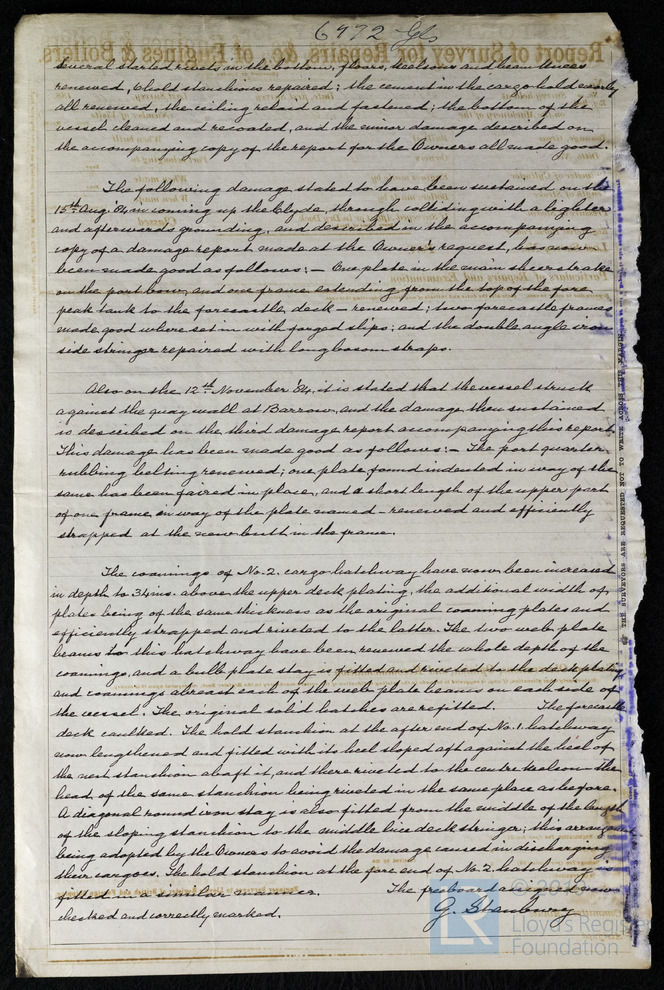 6972 Gls
several started rivets in the bottom, floors, keelsons and beam knees
renewed, 6 hold stanchions repaired; the cement in the cargo hold nearly
all renewed, the ceiling relaid and fastened; the bottom of the
vessel cleaned and recoated, and the minor damage described on
the accompanying copy of the report for the Owners all made good.
The following damage stated to have been sustained on the
15th Aug. '84 on coming up the Clyde through colliding with a lighter
and afterwards grounding, and described in the accompanying
copy of a damage report made at the Owner's request, has now
been made good as follows:— One plate in the main sheerstrake
on the port bow, and one frame extending from the top of the fore
peak tank to the forecastle deck — renewed; two forecastle frames
made good where set in with forged slips; and the double angle iron
side stringer repaired with long bosom straps.
Also on the 12th November '84, it is stated that the vessel struck
against the quay wall at Barrow, and the damage then sustained
is described on the third damage report accompanying this report.
This damage has been made good as follows:— The port quarter
rubbing belting renewed; one plate found indented in way of the
same has been faired in place, and a short length of the upper part
of one frame in way of the plate named — renewed and efficiently
strapped at the new butt in the frame.
The coamings of No. 2. cargo hatchway have now been increased
in depth to 34 ins. above the upper deck plating, the additional width of
plate being of the same thickness as the original coaming plates and
efficiently strapped and riveted to the latter. The two web plate
beams to this hatchway have been renewed the whole depth of the
coamings, and a bulb plate stay is fitted and riveted to the deck plating
and coamings abreast each of the web plate beams on each side of
the vessel. The original solid hatches are refitted. The forecastle
deck caulked. The hold stanchion at the after end of No. 1. hatchway
now lengthened and fitted with its heel sloped aft against the heel of
the next stanchion abaft it, and there riveted to the centre keelson the
head of the same stanchion being riveted in the same place as before.
A diagonal round iron stay is also fitted from the middle of the length
of the sloping stanchion to the middle line deck stringer; this arrangement
being adopted by the Owners to avoid the damage caused in discharging
their cargoes. The hold stanchion at the fore end of No. 2. hatchway is
fitted in a similar manner. The freeboard assigned now
checked and correctly marked.
G. Stanbury
THE SURVEYORS ARE REQUESTED NOT TO WRITE
LR
Lloyd's Register
Foundation